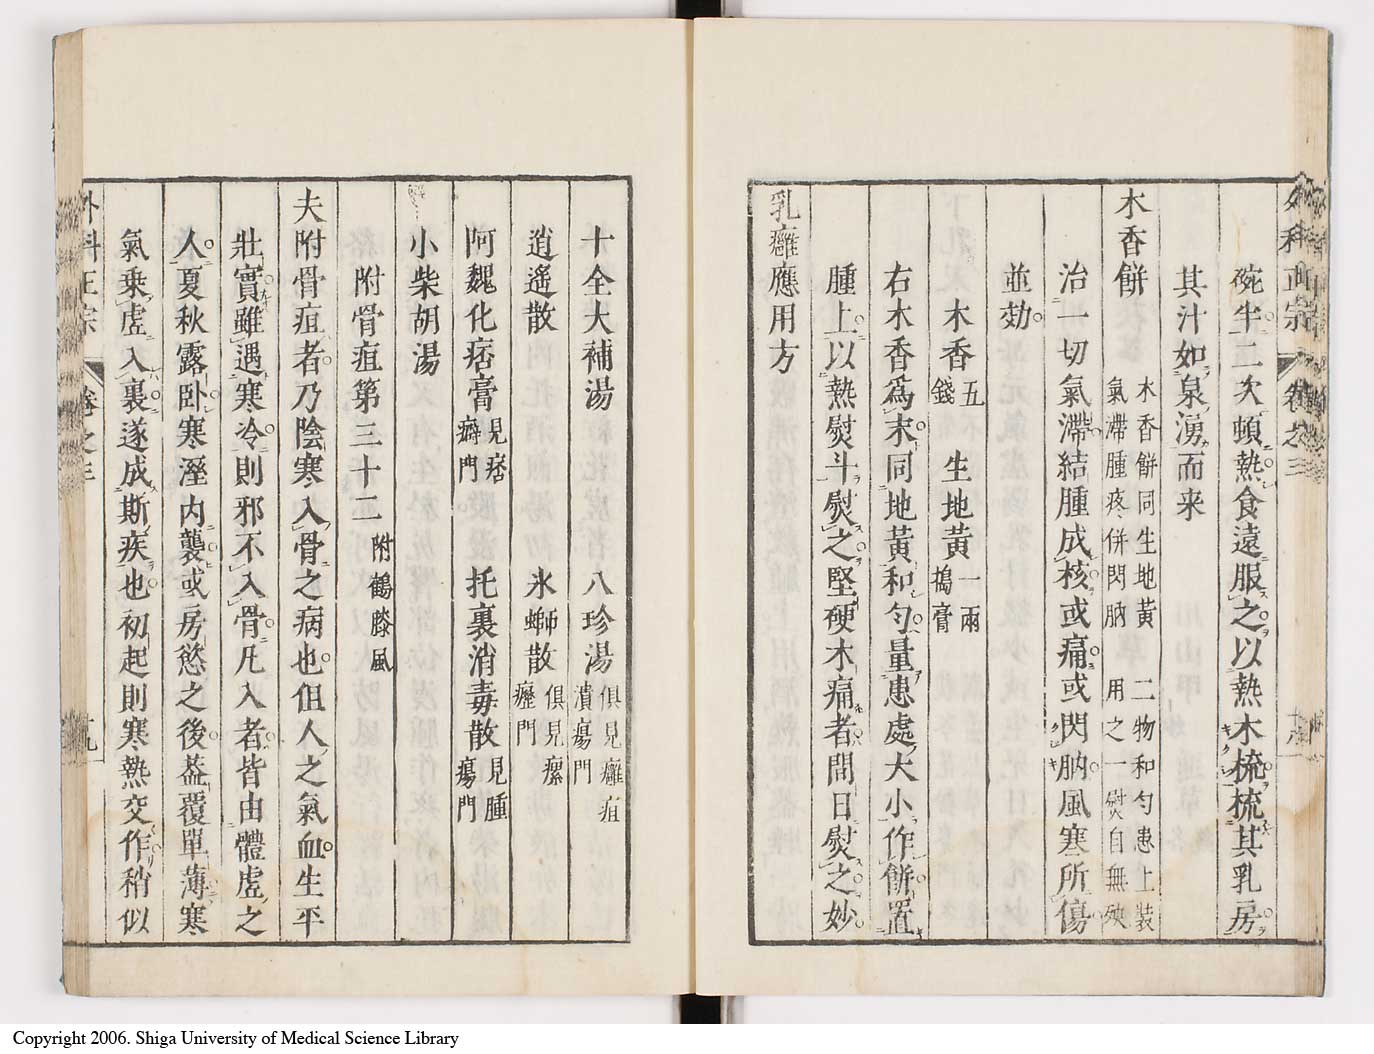 碗半二次頓熱食遠服之以熱木梳梳其乳房
其汁如泉湧而来
木香餅
木香餅同生地黃 二物和勻患上裝
氣滯腫疼併閃肭 用之一熨自無殃
治一切氣滯結腫成核或痛或閃肭風寒所傷
並効
木香五錢 生地黃一兩搗膏
右木香為末同地黃和勻量患處大小作餅置
腫上以熱熨斗熨之堅硬木痛者間日熨之妙
乳癰應用方
十全大補湯 八珍湯俱見癰疽潰瘍門
逍遙散 氷螄散俱見瘰癧門
阿魏化痞膏見痞癖門 托裏消毒散見腫瘍門
小柴胡湯
附骨疽第三十二附鶴膝風
夫附骨疽者乃陰寒入骨之病也但人之氣血生平
壯實雖遇寒冷則邪不入骨凡入者皆由體虛之
人夏秋露卧寒溼内襲或房慾之後葢覆單薄寒
氣乗虛入裏遂成斯疾也初起則寒熱交作稍似
外科正宗 卷之三
Copyright 2006. Shiga University of Medical Science Library